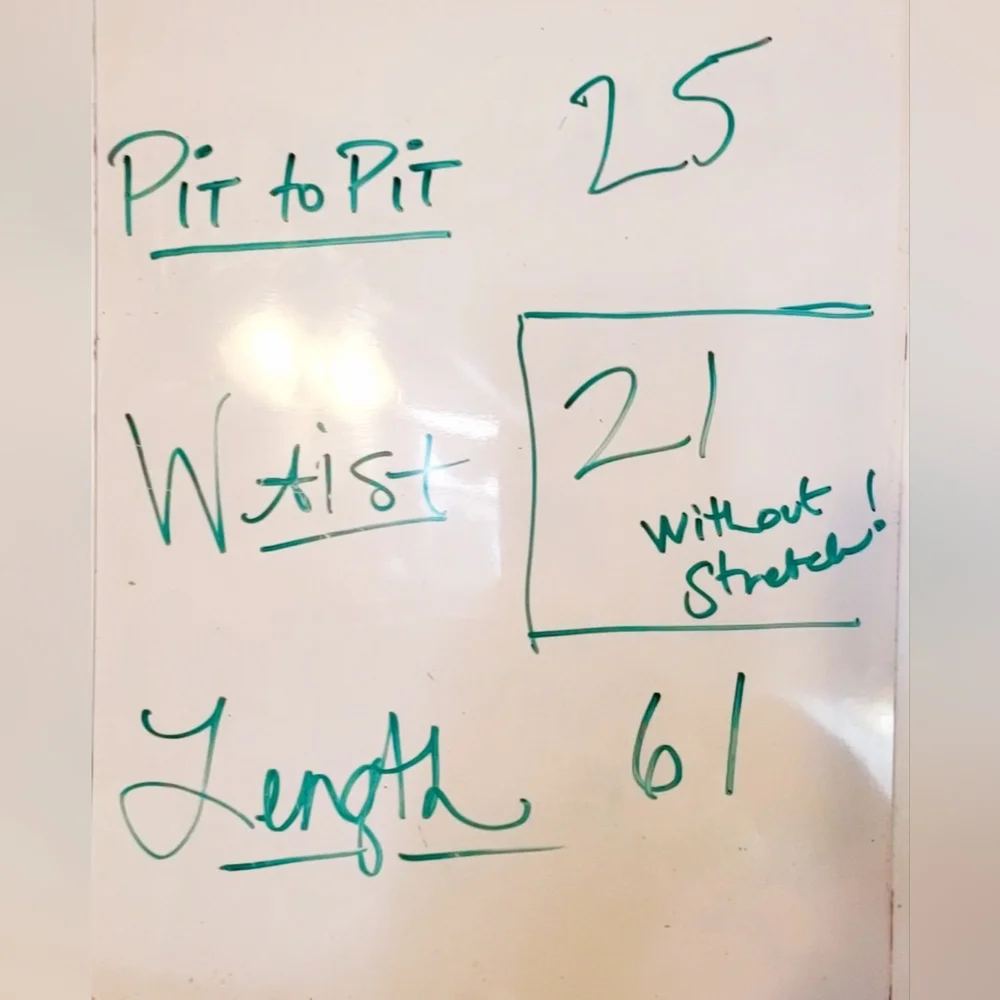 Pit to Pit 25
Waist 21
without
stretch!
Length 61